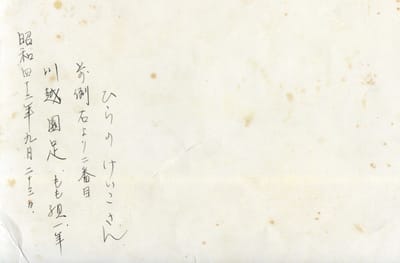 ひらのけいこさん
前側右より二番目
川越園足 もも組一年
昭和四十三年九月二十三日